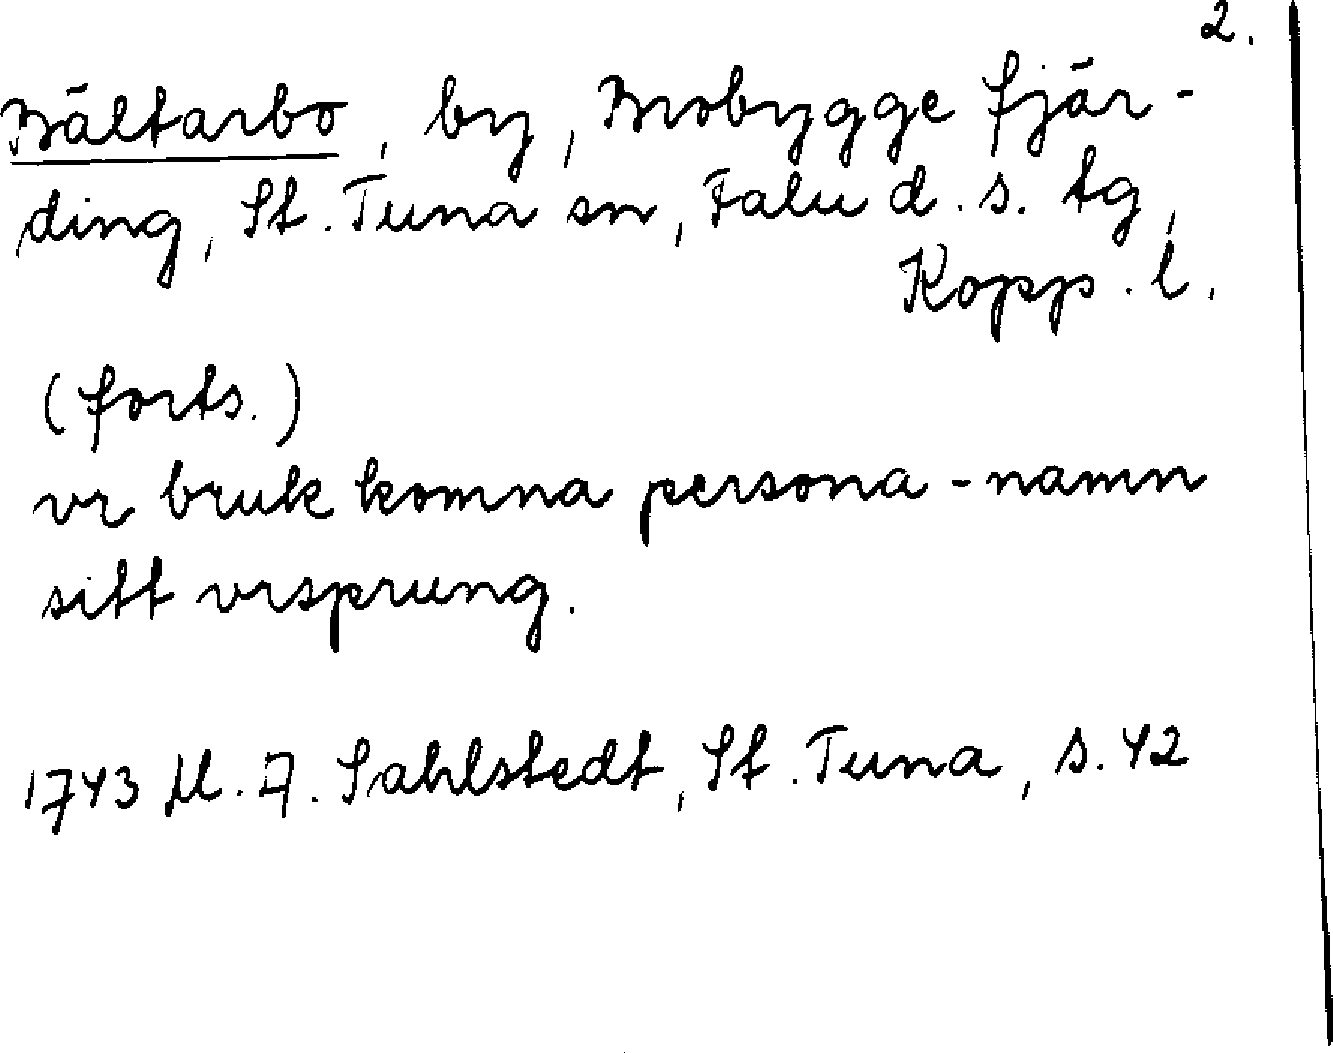 2.
Bältarbo, by, Brobygge fjär-
ding, St. Tuna sn, Falu d. s. tg,
Kopp. l.
(forts.)
vr bruk komna persona-namn
sitt vrsprung.
1743 M. A. Sahlstedt, St. Tuna, s. 42